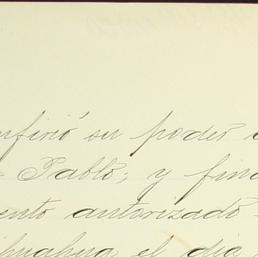 nfirió su poder
Pablo; y fin
ento autorizado
ihuahua el dia